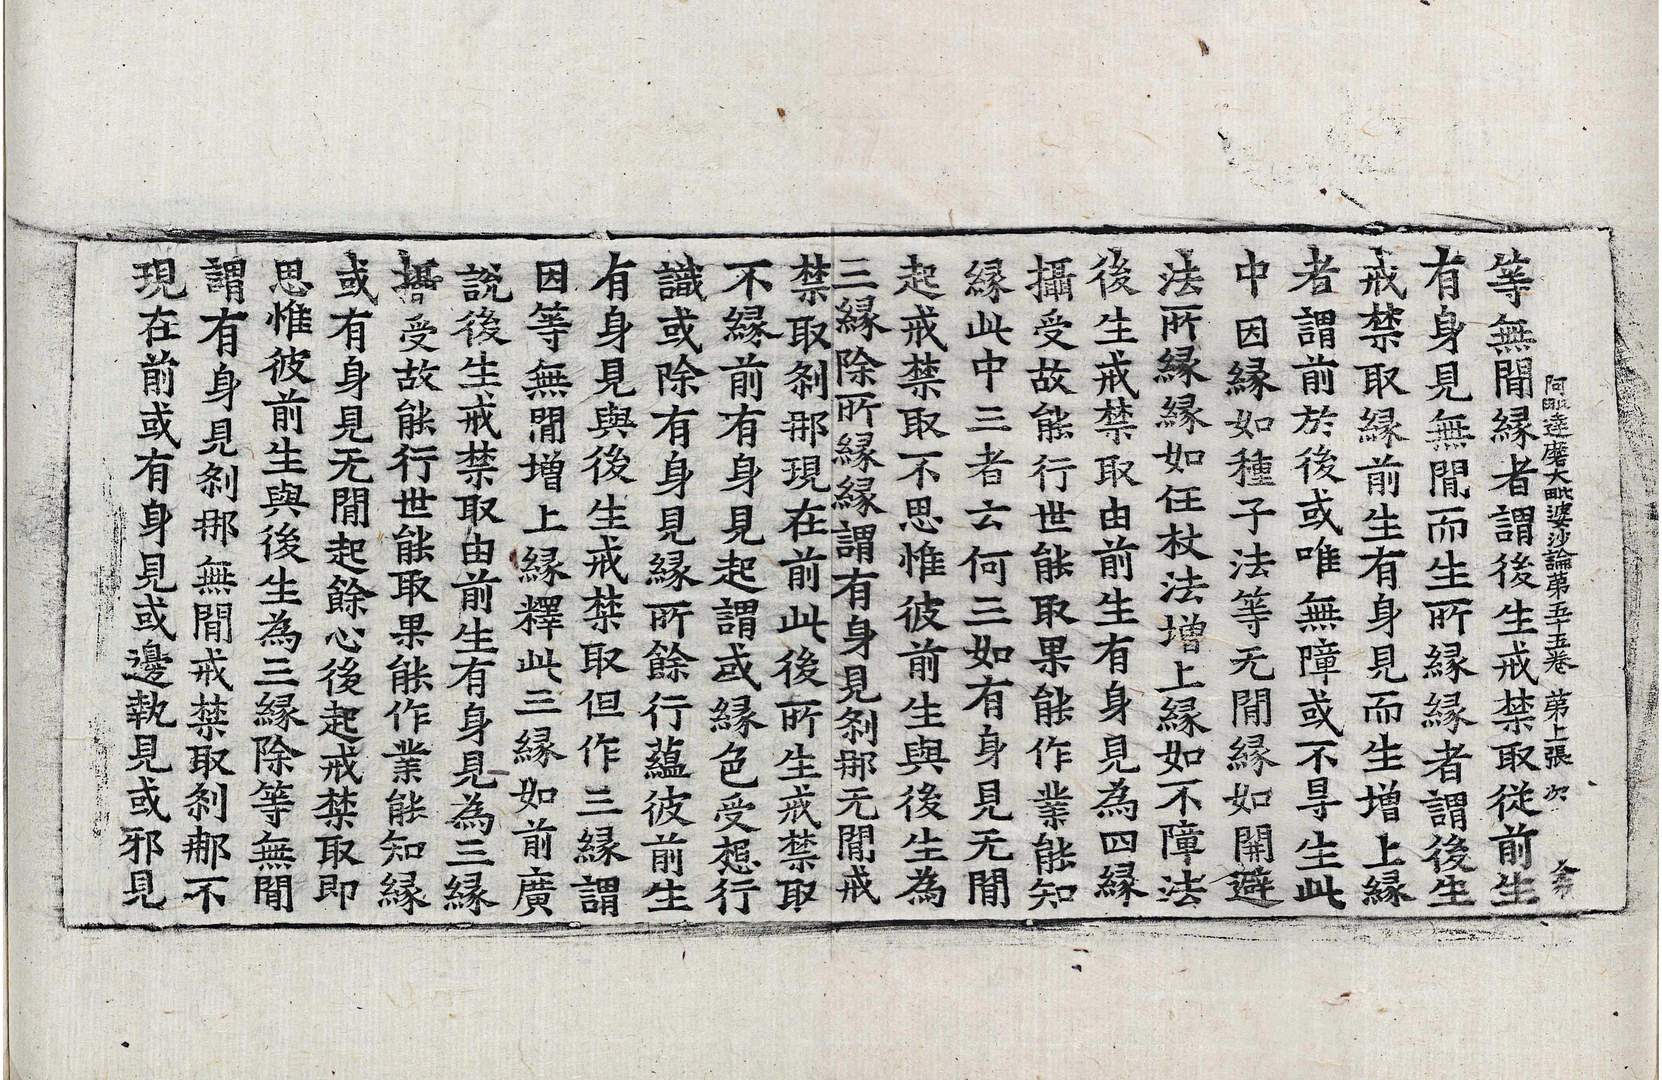 阿毗達磨大毗婆沙論第五十五卷 第上張 次
等無閒緣者謂後生戒禁取從前生
有身見無閒而生所緣緣者謂後生
戒禁取緣前生有身見而生增上緣
者謂前於後或唯無障或不㝵生此
中因緣如種子法等无閒緣如開避
法所緣緣如任杖法增上緣如不障法
後生戒禁取由前生有身見為四緣
攝受故能行世能取果能作業能知
緣此中三者云何三如有身見无閒
起戒禁取不思惟彼前生與後生為
三緣除所緣緣謂有身見剎那无閒戒
禁取剎那現在前此後所生戒禁取
不緣前有身見起謂或緣色受想行
識或除有身見緣所餘行蘊彼前生
有身見與後生戒禁取但作三緣謂
因等無閒增上緣釋此三緣如前廣
說後生戒禁取由前生有身見為三緣
攝受故能行世能取果能作業能知緣
或有身見无閒起餘心後起戒禁取即
思惟彼前生與後生為三緣除等無閒
謂有身見剎那無閒戒禁取剎那不
現在前或有身見或邊執見或邪見